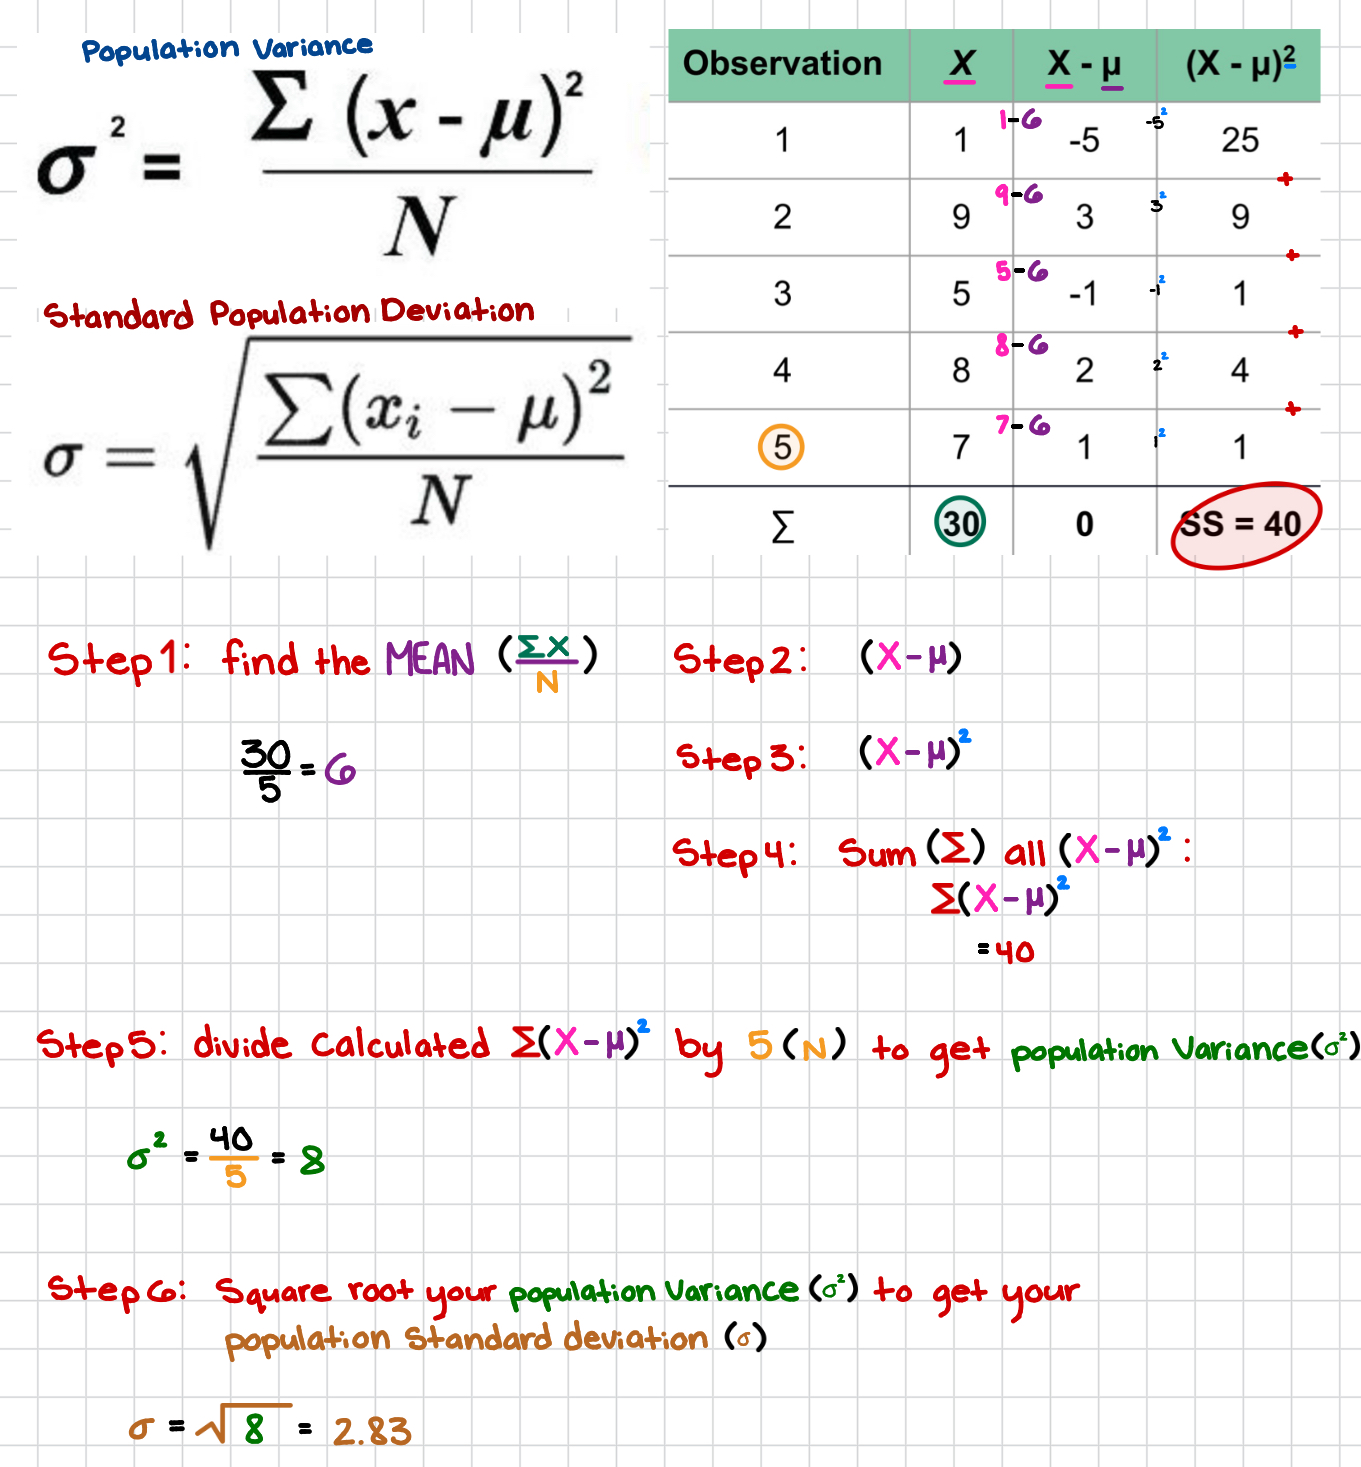 Population Variance
σ² = Σ (x - μ)² / N
Standard Population Deviation
σ = √(∑(xᵢ − μ)² / N)
Observation X X - μ (X - μ)²
1 1 1-6 -5 -5² 25
+
2 9 9-6 3 3² 9
+
3 5 5-6 -1 -1² 1
+
4 8 8-6 2 2² 4
+
5 7 7-6 1 1² 1
∑ 30 0 SS = 40
Step 1: find the MEAN (ΣX / N)
30 / 5 = 6
Step 2: (X-μ)
Step 3: (X-μ)²
Step 4: Sum (Σ) all (X-μ)² :
Σ(X-μ)²
= 40
Step 5: divide Calculated Σ(X-μ)² by 5 (N) to get population Variance (σ²)
σ² = 40 / 5 = 8
Step 6: Square root your population Variance (σ²) to get your
population Standard deviation (σ)
σ = √8 = 2.83